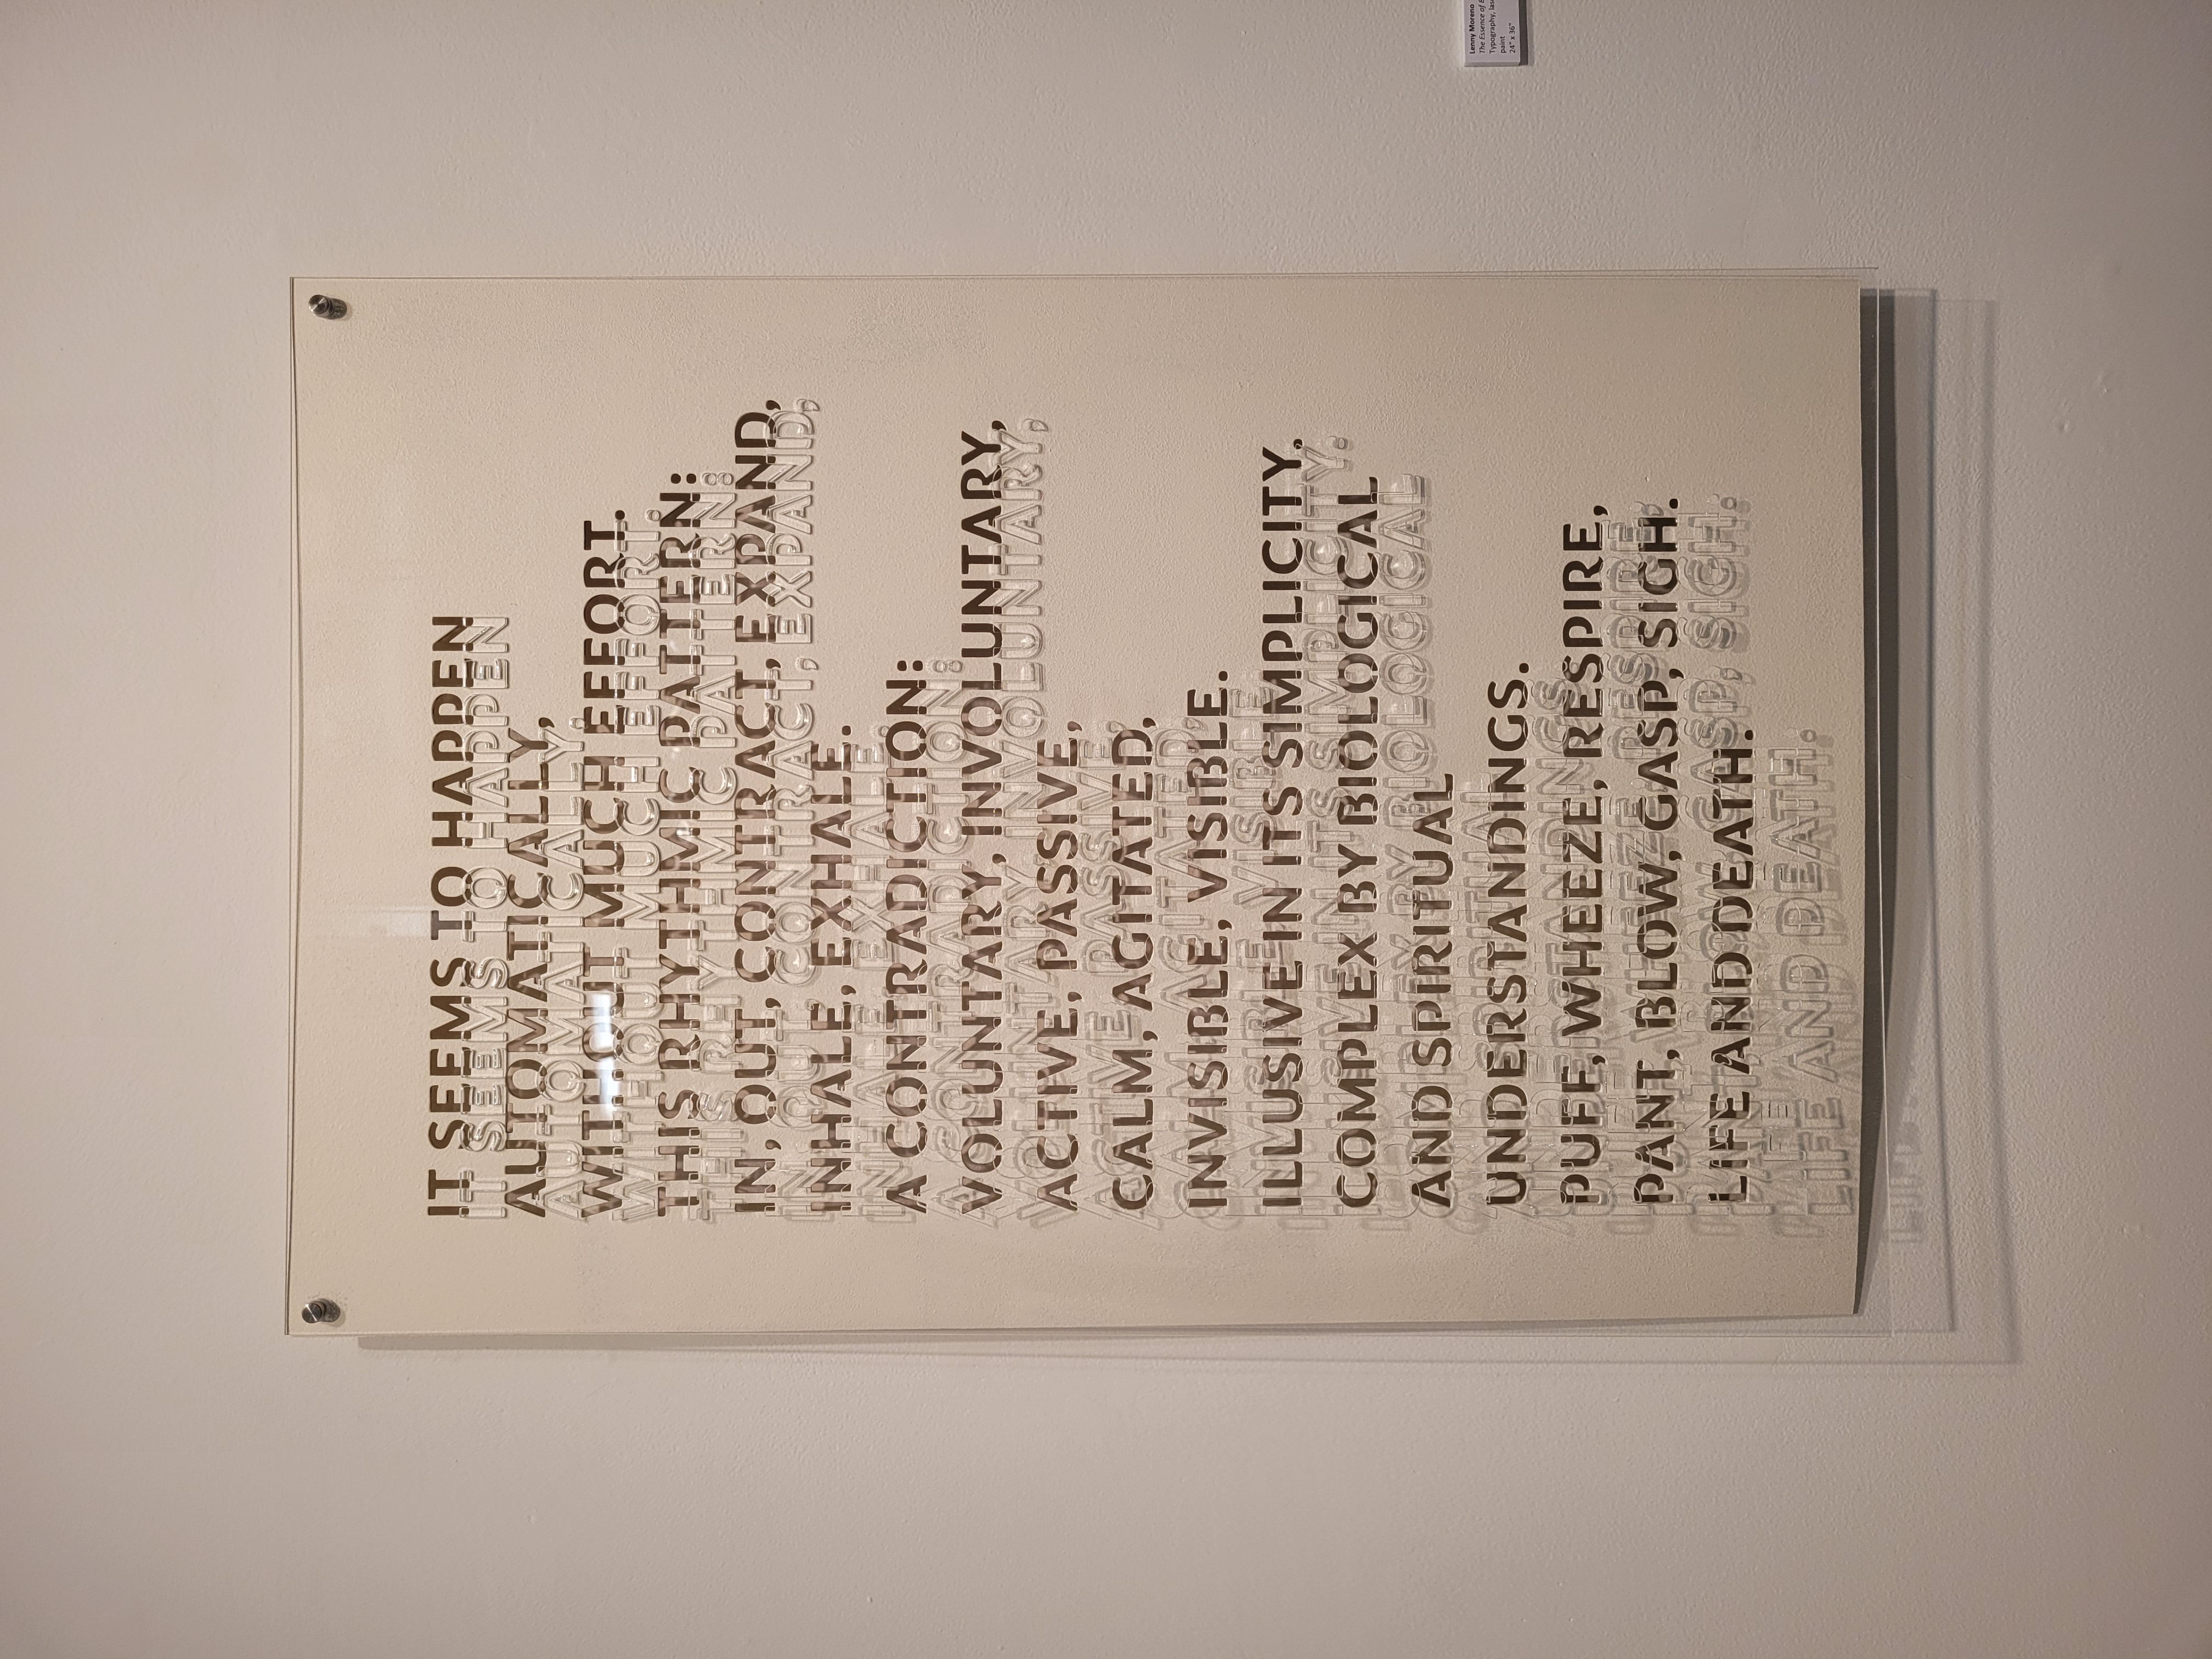 IT SEEMS TO HAPPEN
AUTOMATICALLY,
WITHOUT MUCH EFFORT.
THIS RHYTHMIC PATTERN:
IN, OUT, CONTRACT, EXPAND,
INHALE, EXHALE.
A CONTRADICTION:
VOLUNTARY, INVOLUNTARY,
ACTIVE, PASSIVE,
CALM, AGITATED,
INVISIBLE, VISIBLE.
ILLUSIVE IN ITS SIMPLICITY.
COMPLEX BY BIOLOGICAL
AND SPIRITUAL
UNDERSTANDINGS.
PUFF, WHEEZE, RESPIRE,
PANT, BLOW, GASP, SIGH.
LIFE AND DEATH.
Lenny Moreno
The Essence of
Typography,
paint
24" x 36"